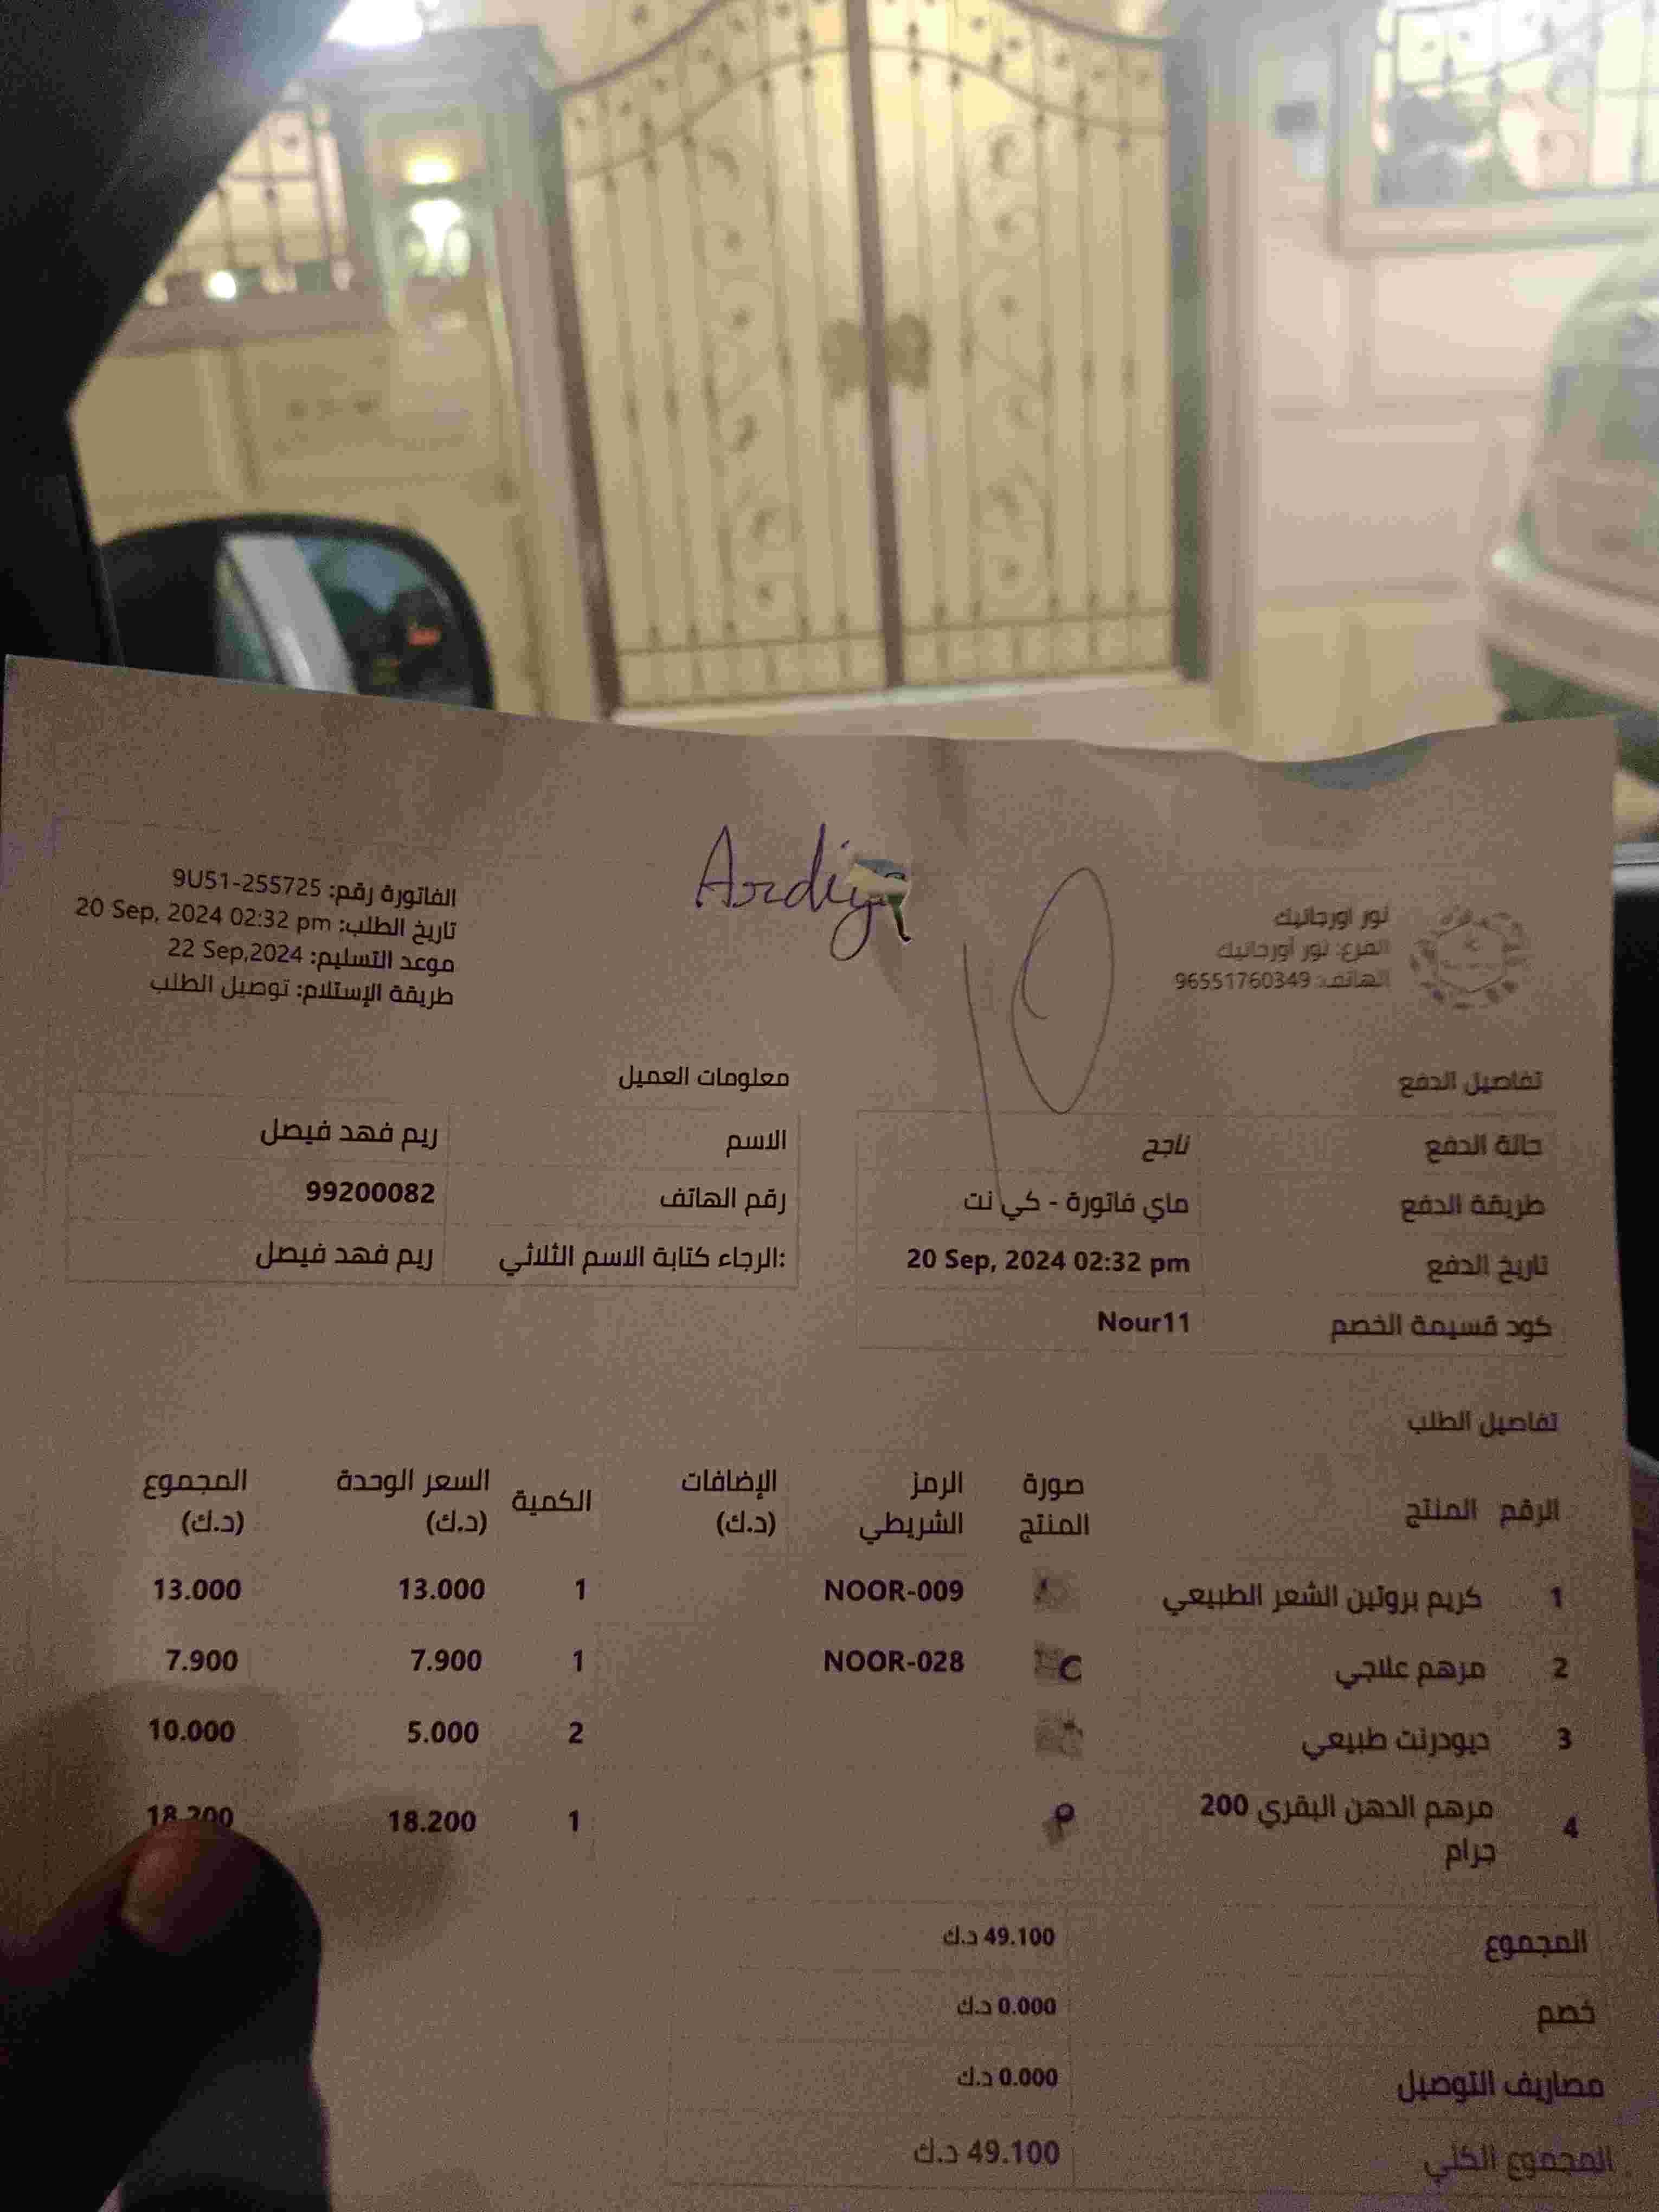 Ardiya
10
نور اورجانيك
الفرع: نور أورجانيك
الهاتف: 96551760349
الفاتورة رقم: 9U51-255725
تاريخ الطلب: 20 Sep, 2024 02:32 pm
موعد التسليم: 22 Sep,2024
طريقة الإستلام: توصيل الطلب
تفاصيل الدفع
حالة الدفع ناجح
طريقة الدفع ماي فاتورة - كي نت
تاريخ الدفع 20 Sep, 2024 02:32 pm
كود قسيمة الخصم Nour11
معلومات العميل
الاسم ريم فهد فيصل
رقم الهاتف 99200082
:الرجاء كتابة الاسم الثلاثي ريم فهد فيصل
تفاصيل الطلب
الرقم المنتج صورة المنتج الرمز الشريطي الإضافات (د.ك) الكمية السعر الوحدة (د.ك) المجموع (د.ك)
1 كريم بروتين الشعر الطبيعي NOOR-009 1 13.000 13.000
2 مرهم علاجي NOOR-028 1 7.900 7.900
3 ديودرنت طبيعي 2 5.000 10.000
4 مرهم الدهن البقري 200 1 18.200 18.200
جرام
المجموع 49.100 د.ك
خصم 0.000 د.ك
مصاريف التوصيل 0.000 د.ك
المجموع الكلي 49.100 د.ك